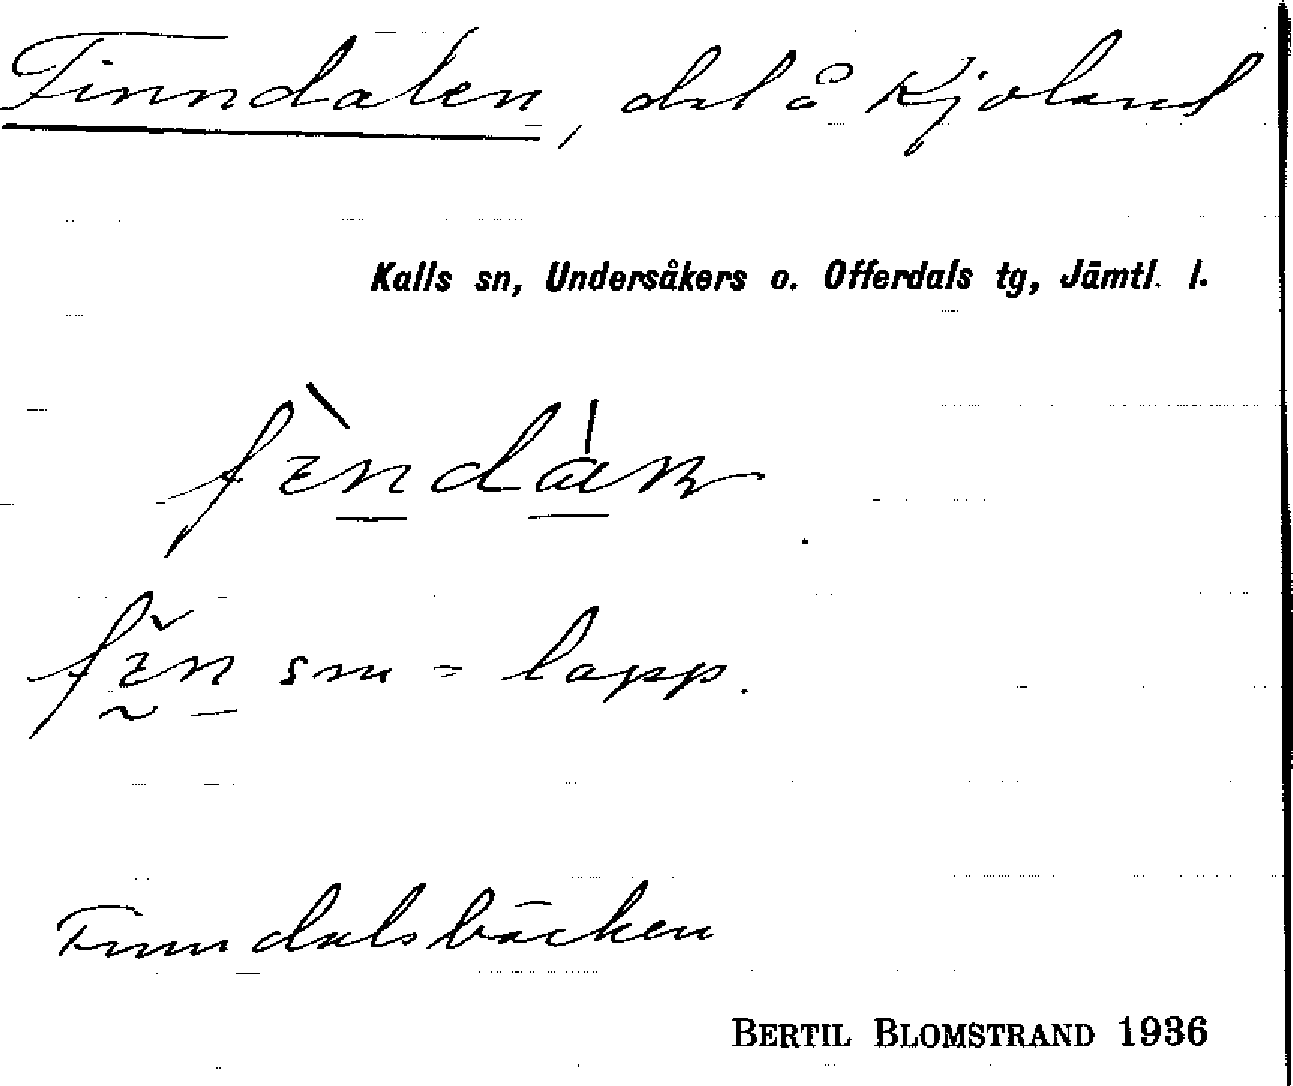 Finndalen, dal å Kjoland
Kalls sn, Undersåkers o. Offerdals tg, Jämtl. l.
sm = lapp.
Finndalsbäcken
BERTIL BLOMSTRAND 1936